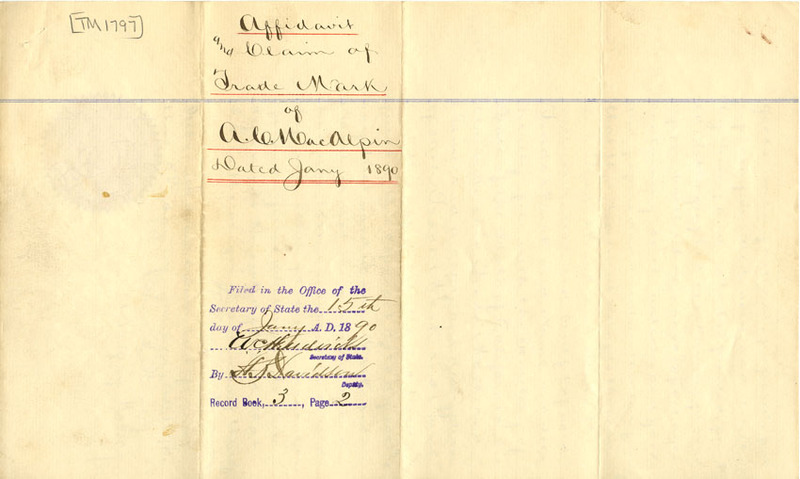 [TM1797]
Affidavit
and Claim of
Trade Mark
of
A. C. MacAlpin
Dated Jany 1890
Filed in the Office of the
Secretary of State the 15th
day of Jany A. D. 1890
Secretary of State.
By Davidson
Deputy.
Record Book, 3, Page 2